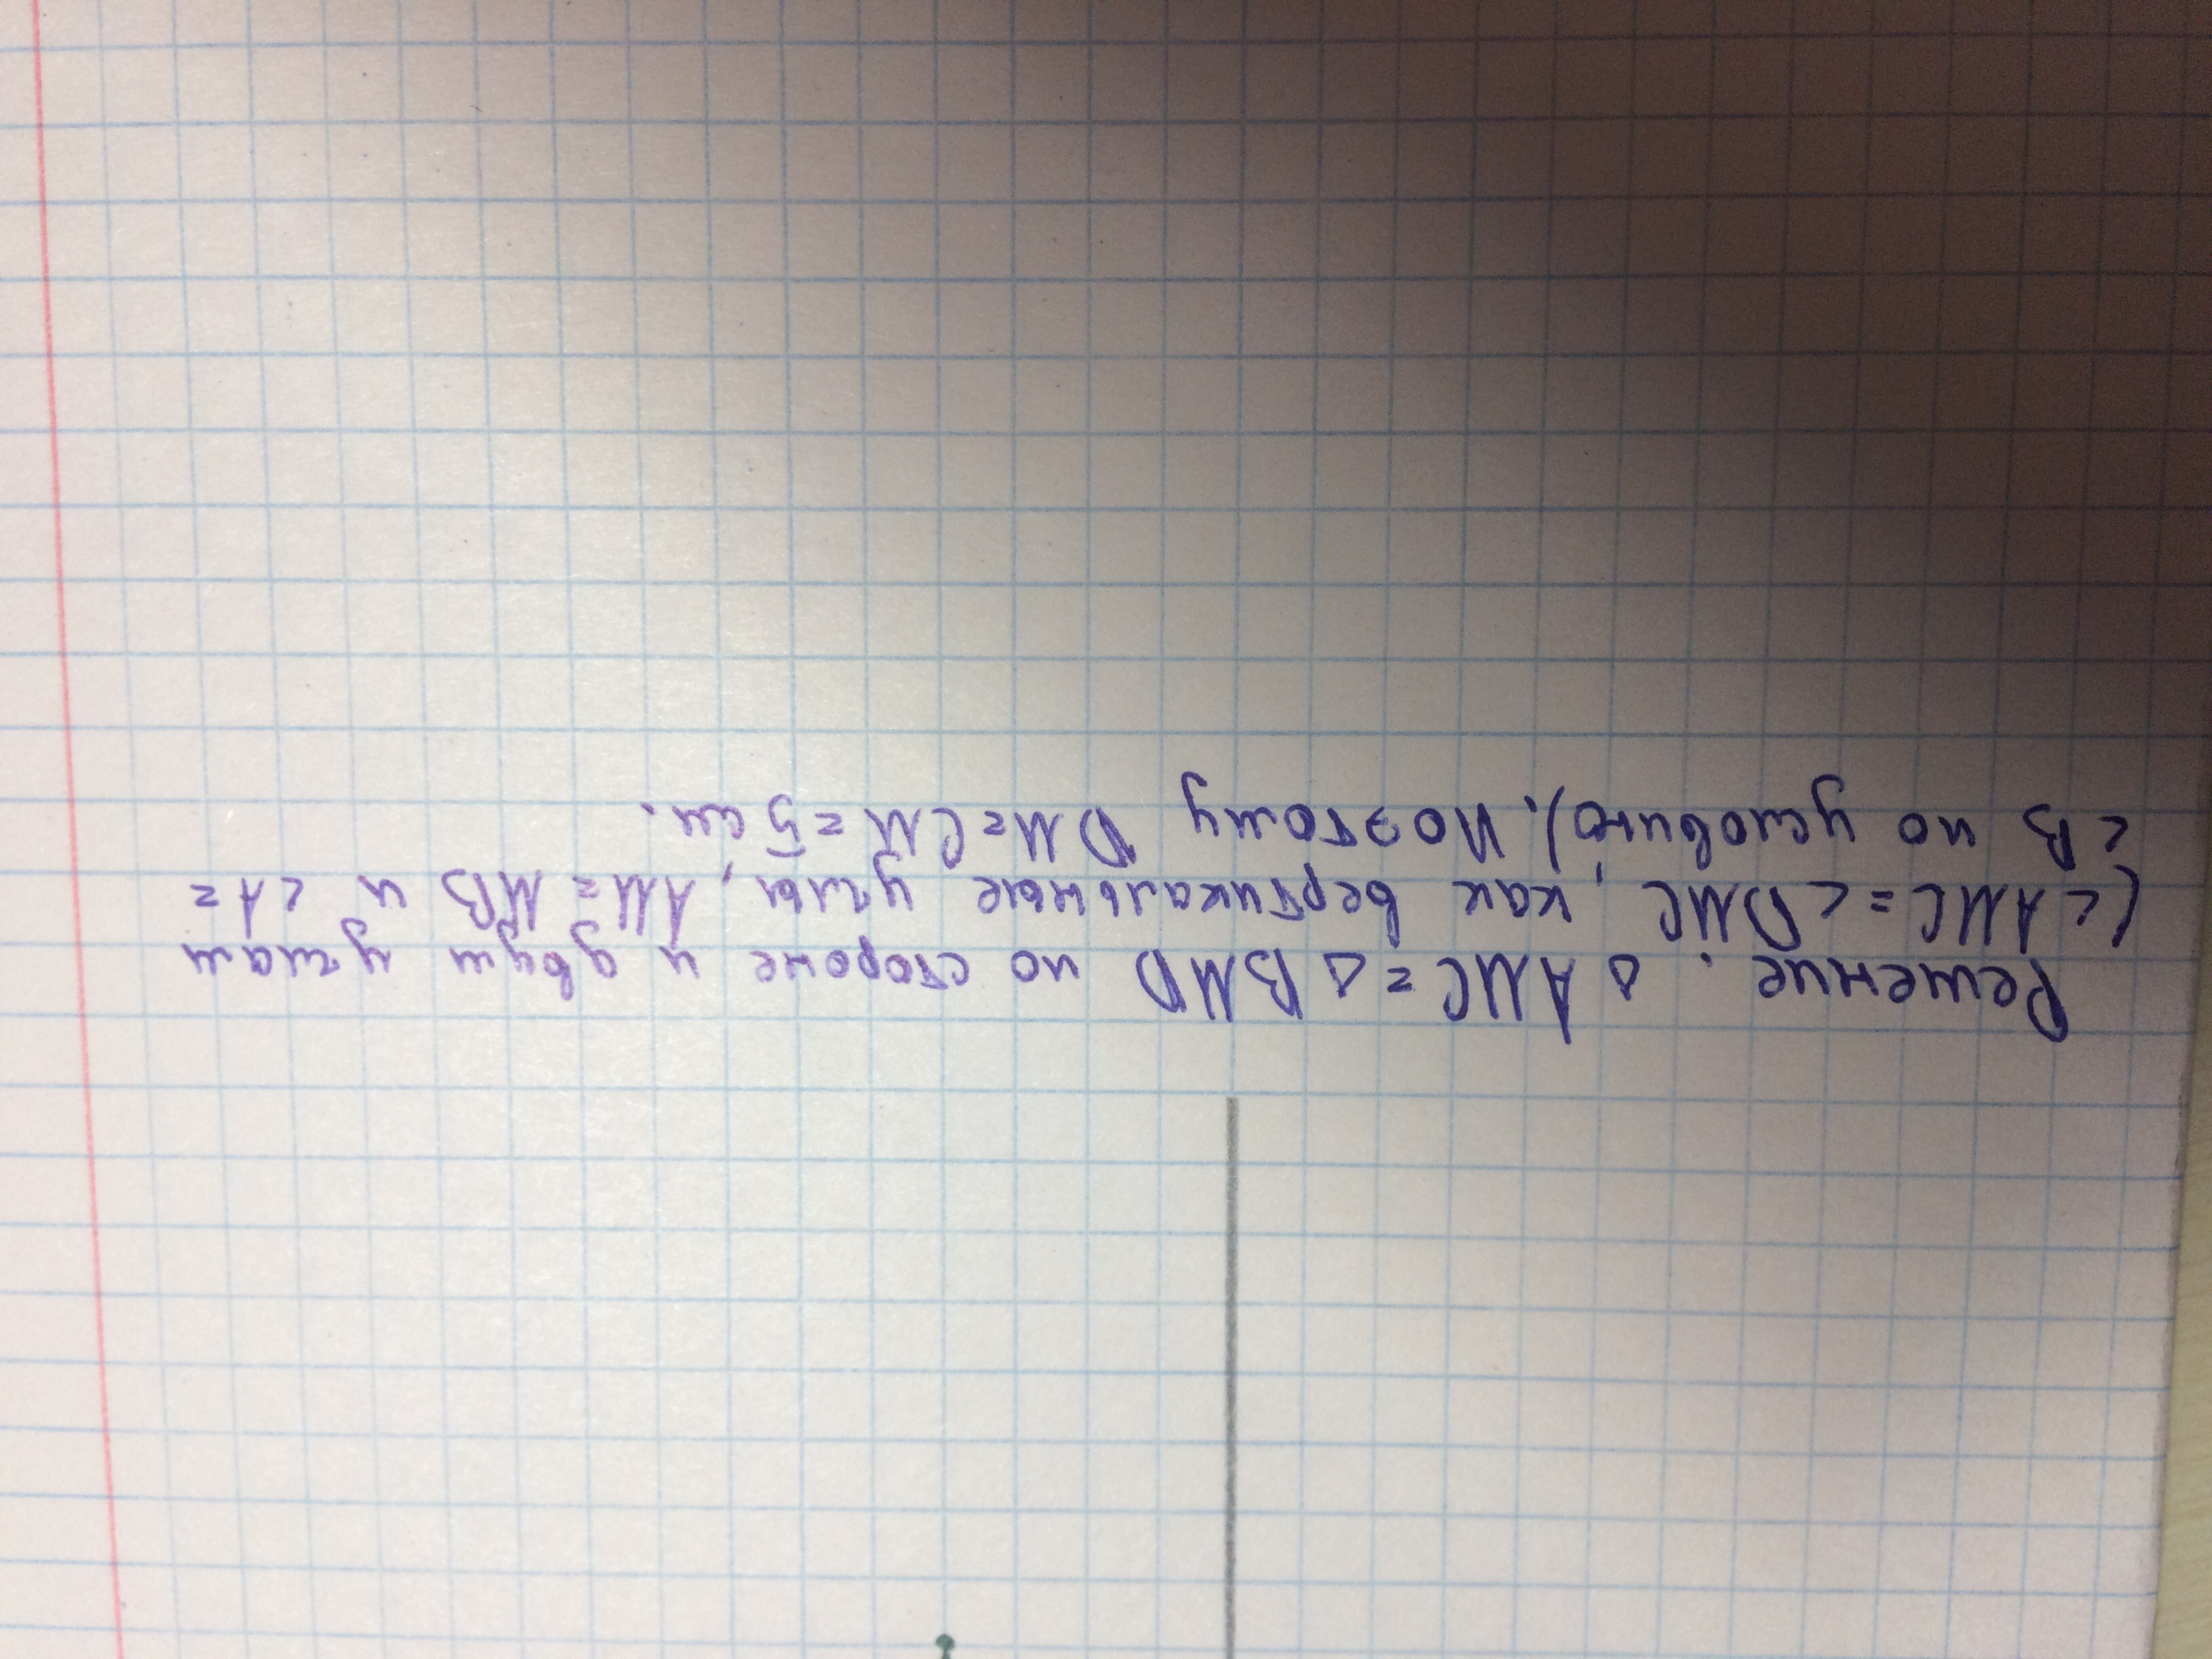 Решение. △ AMC = △ BMD по стороне и двум углам
(<AMC = <DMC, как вертикальные углы, AM = MB и <A =
<B по условию). Поэтому DM = CM = 5 см.